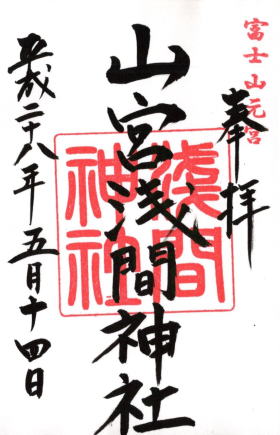 富士山元宮
奉拝
山宮浅間神社
浅間
神社
平成二十八年五月十四日